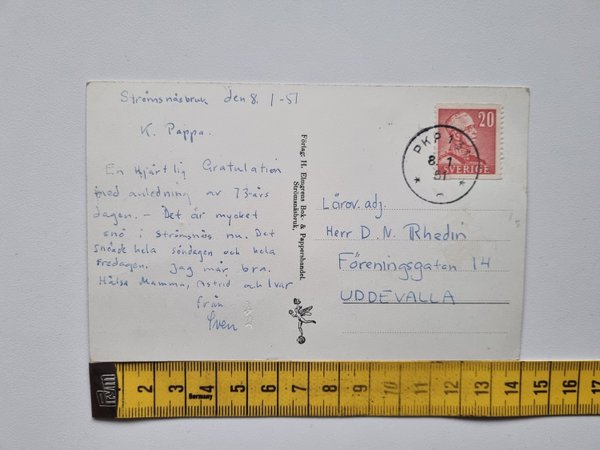 Strömsnäsbruk den 8. 1 -51
K. Pappa.
En Hjärtlig Gratulation
med anledning av 73-års
dagen. - Det är mycket
snö i Strömsnäs nu. Det
snöade hela söndagen och hela
Fredagen. Jag mår bra.
Hälsa Mamma, Astrid och Ivar
från
Sven
Förlag: H. Elmgrens Bok- & Pappershandel.
Strömsnäsbruk.
20
SVERIGE
PKP
8. 1
51
Lärov. adj.
Herr D. N. Rhedin
Föreningsgatan 14
UDDEVALLA
2 3 4 5 6 7 8 9 10 11 12 13 14 15 16 17
Germany